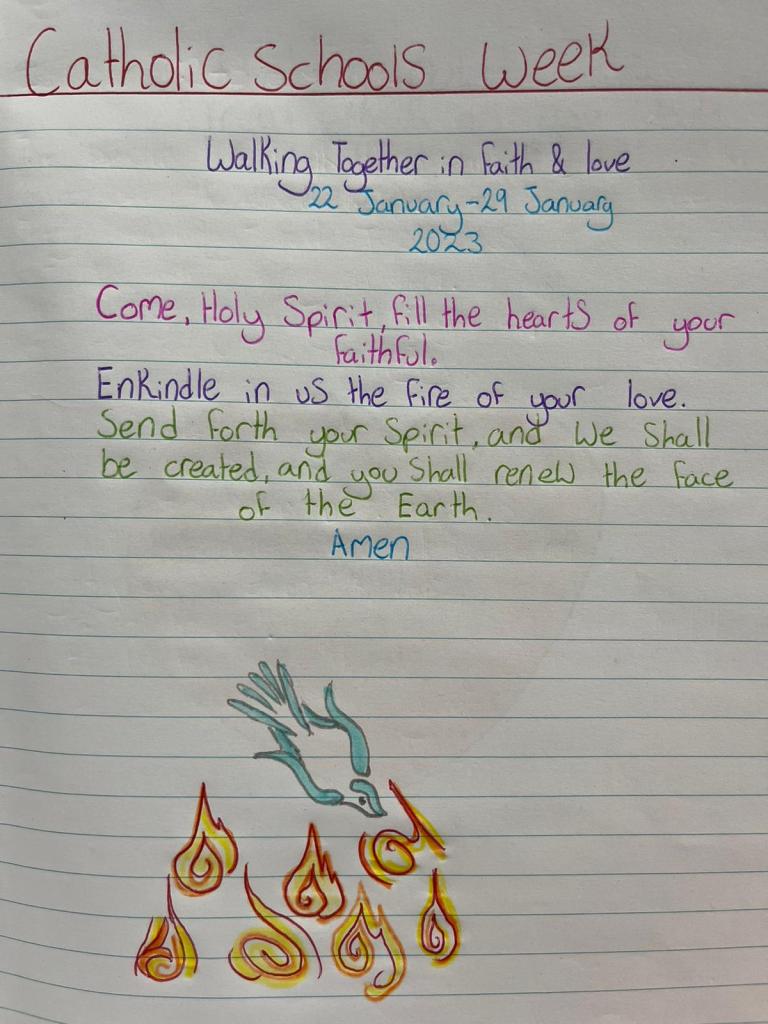 Catholic Schools Week
Walking Together in Faith & love
22 January-29 January
2023
Come, Holy Spirit, fill the hearts of your
faithful.
Enkindle in us the fire of your love.
Send forth your Spirit, and we shall
be created, and you shall renew the face
of the Earth.
Amen